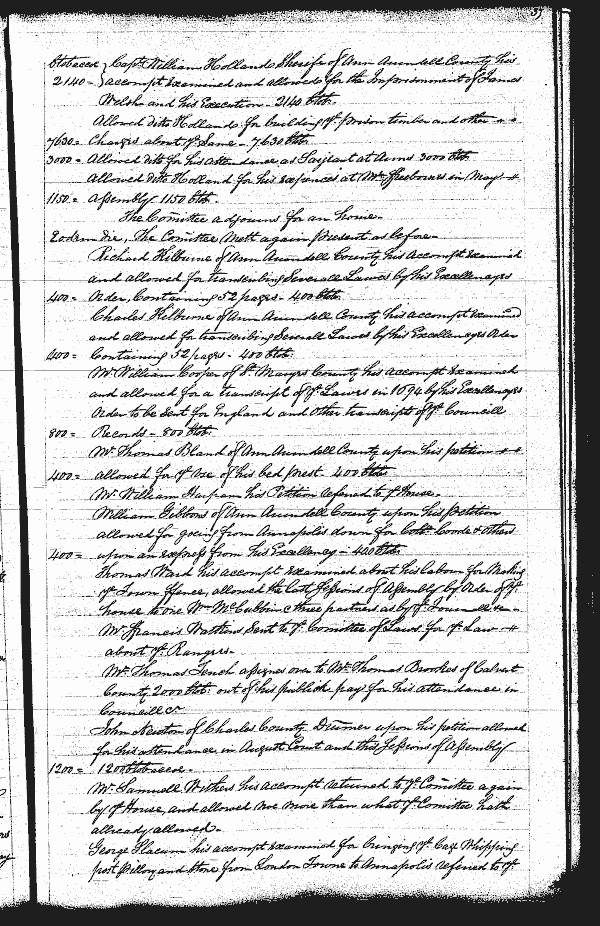 lbtobaccoe } Capt. William Holland Sherife of Ann Arundell County his
2140 = } accompt Examined and allowed for the Imprisonment of James
Welsh and his Execution - 2140 lbtob.
Allowed ditto Holland for building ye. prison timber and other
7630 = Charges about ye. Same - 7630 lbtob.
3000 = Allowed ditto for his attendance as Sarjeant at Arms 3000 lbtob.
Allowed ditto Holland for his expences at Mr. Freebornes in May
1150 = Assembly 1150 lbtob.
The Comittee adjourns for an houre.
Eodem die, The Comittee Mett again Present as before.
Richard Kilburne of Ann Arundell County his accompt Examined
and allowed for transcribing Severall Lawes by his Excellencys
400 = Order, Containing 52 pages - 400 lbtob.
Charles Kilburne of Ann Arundell County his accompt Examined
and allowed for transcribing Severall Lawes by his Excellencys Order
400 = Containing 52 pages - 400 lbtob.
Mr. William Cooper of St. Maryes County his accompt Examined
and allowed for a transcript of ye. Lawes in 1694 by his Excellencys
Order to be Sent for England and other transcripts of ye. Councill
800 = Records - 800 lbtob.
Mr. Thomas Bland of Ann Arundell County upon his petition
400 = allowed for ye. Use of his bed prest 400 lbtob.
Mr. William Harpam his Petition referred to ye. House.
William Gibbons of Ann Arundell County upon his Petition
allowed for going from Annapolis down for Collo. Coode & others
400 = upon an express from his Excellency - 400 lbtob.
Thomas Ward his accompt Examined about his labour for Making
ye. Town ffence, allowed the last Sessions of Assembly by Order of ye.
house to one Wm. McCubbin & three partners as by ye. Journall
Mr. ffrancis Wattkins Sent to ye. Comittee of Laws for ye. Law
about ye. Rangers.
Mr. Thomas Tench assignes over to Mr. Thomas Brookes of Calvert
County 2000 lbtob: out of his publick pay for his attendance in
Councill &c
John Newton of Charles County Drumer upon his petition allowed
for his attendance in August Court and this Sessions of Assembly
1200 = 1200 lbtobaccoe.
Mr. Samuell Withers his accompt returned to ye. Comittee again
by ye. House, and allowed noe more than what ye. Comittee hath
allready allowed.
George Slacum his accompt Examined for bringing ye. Cage Whipping
post Pillory and Stone from London Towne to Annapolis referred to ye.